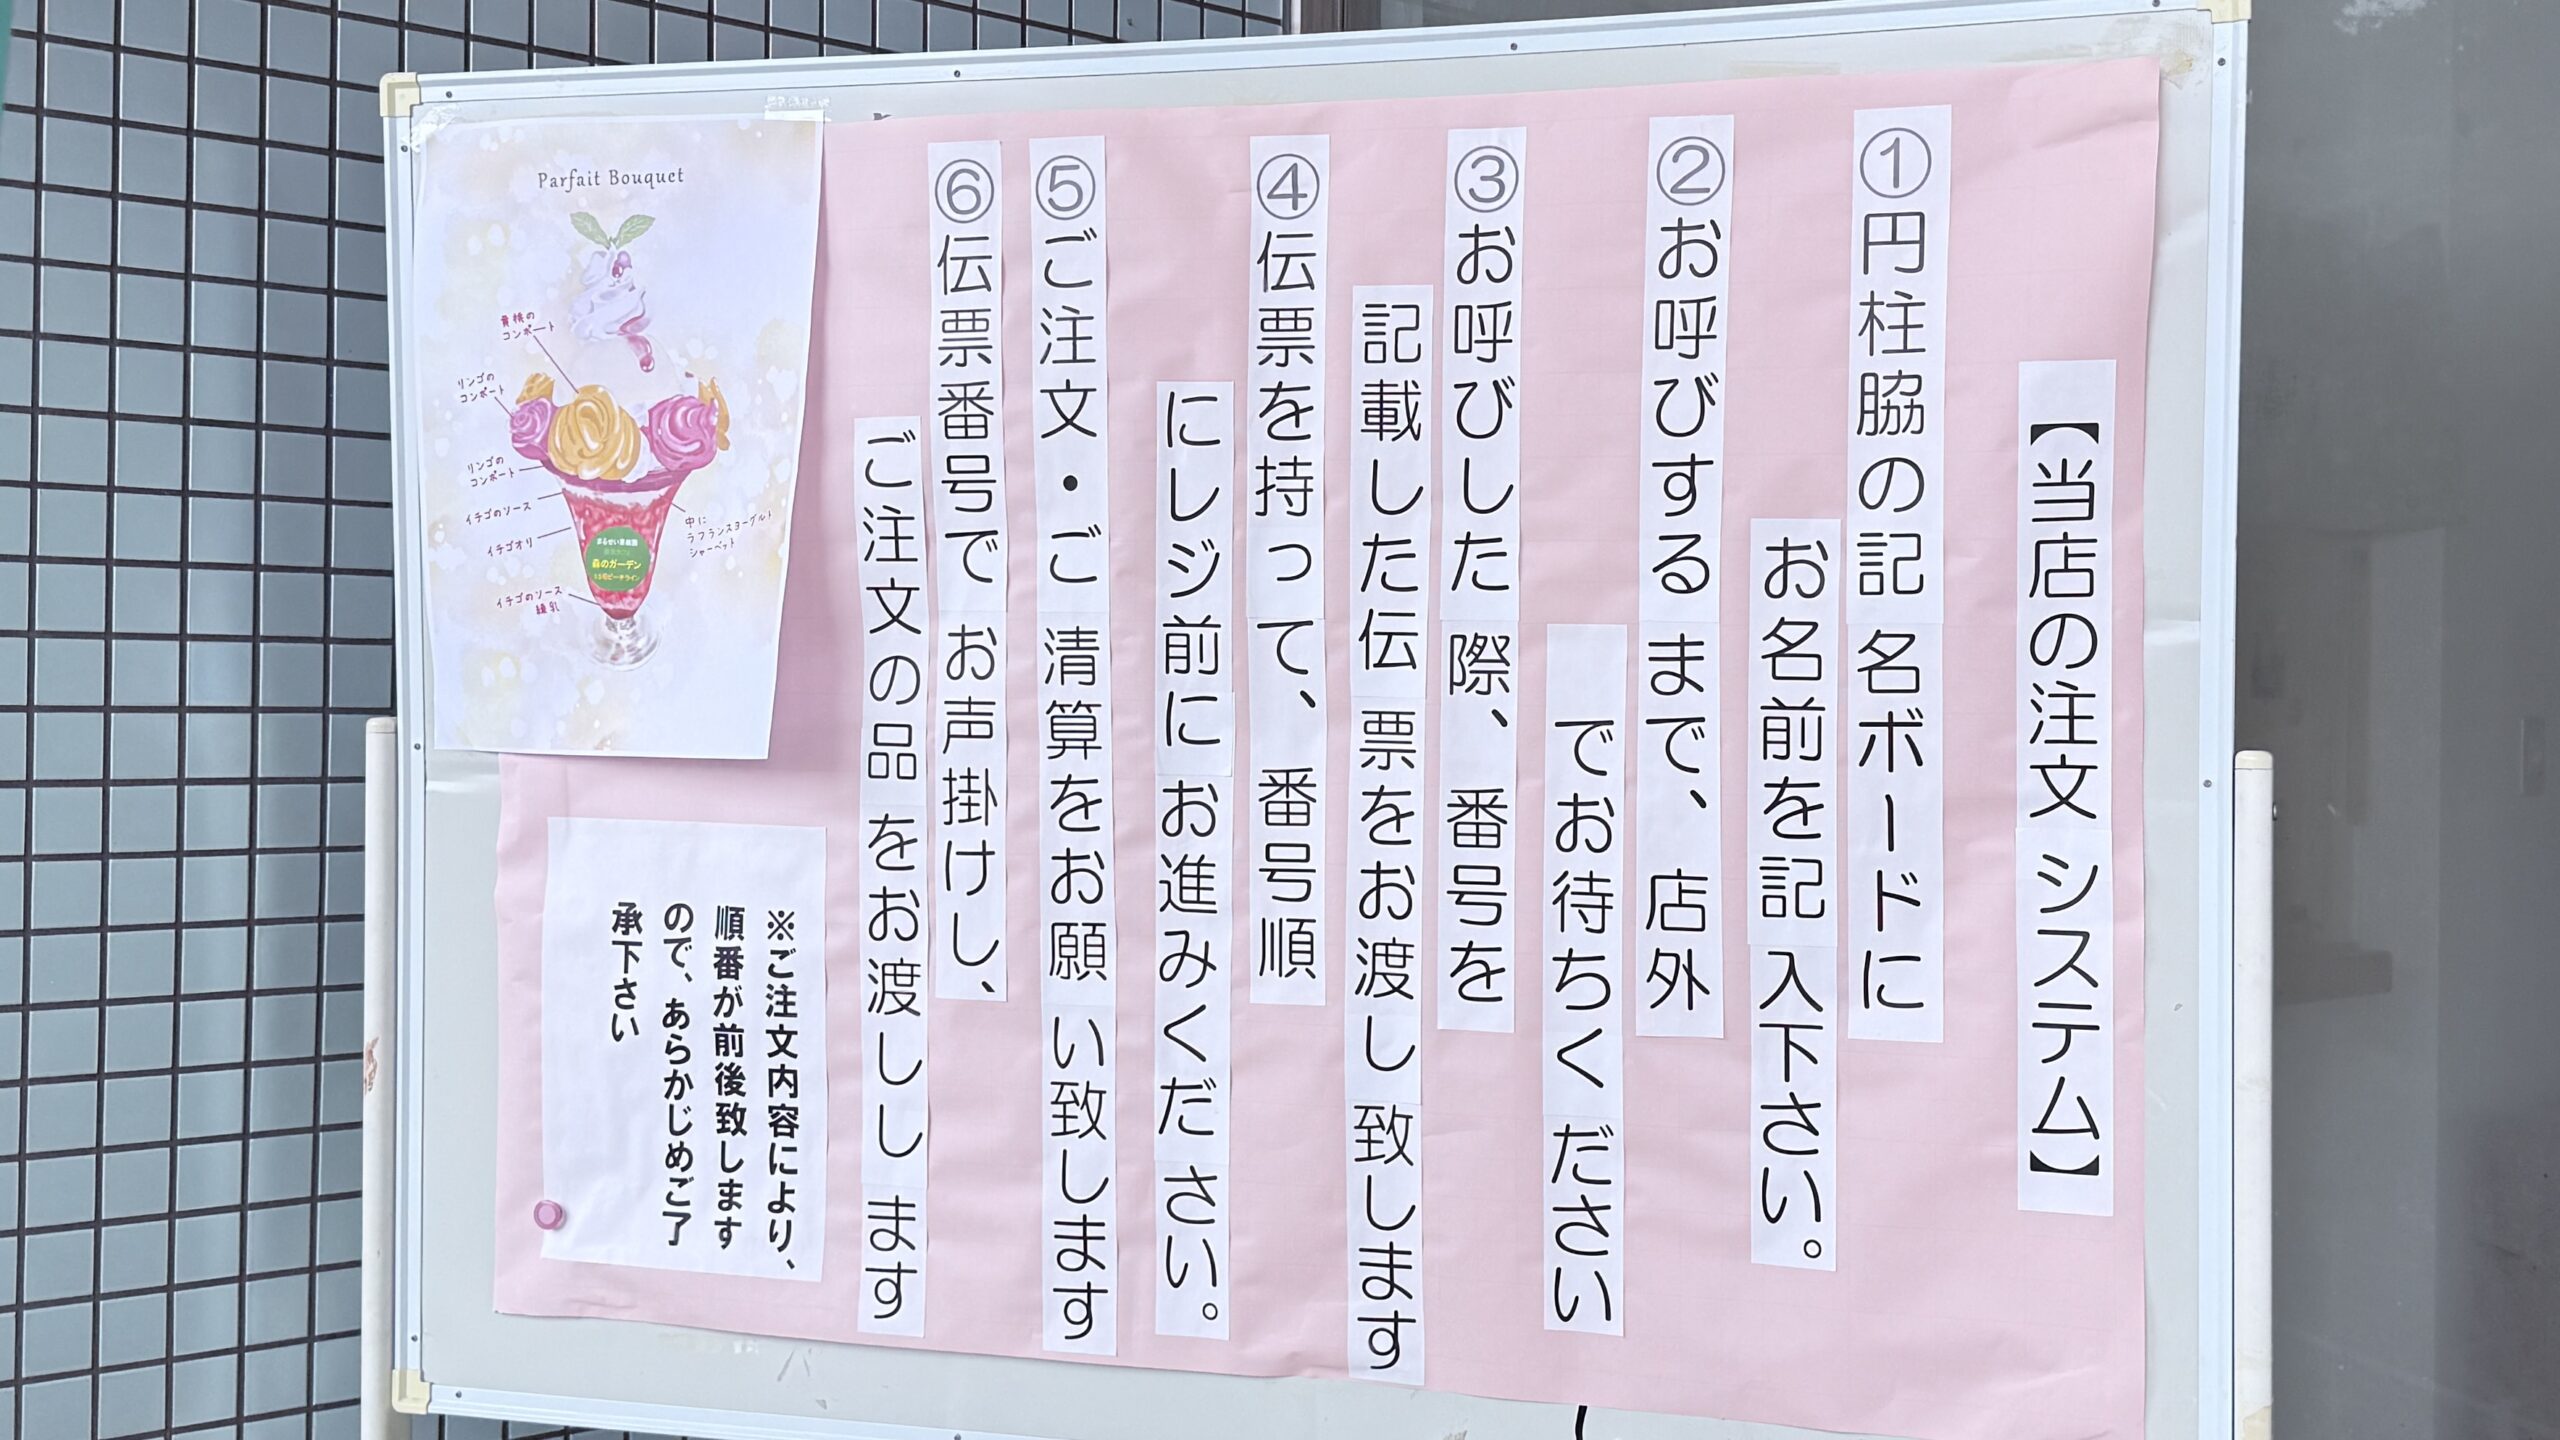 【当店の注文システム】
①円柱脇の記名ボードに
お名前を記入下さい。
②お呼びするまで、店外
でお待ちください
③お呼びした際、番号を
記載した伝票をお渡し致します
④伝票を持って、番号順
にレジ前にお進みください。
⑤ご注文・ご清算をお願い致します
⑥伝票番号でお声掛けし、
ご注文の品をお渡しします
※ご注文内容により、
順番が前後致します
ので、あらかじめご了
承下さい
Parfait Bouquet
黄桃の
コンポート
リンゴの
コンポート
リンゴの
コンポート
イチゴのソース
イチゴオリ
イチゴのソース
練乳
中に
ラフランスヨーグルト
シャーベット
まるせい果樹園
森のガーデン